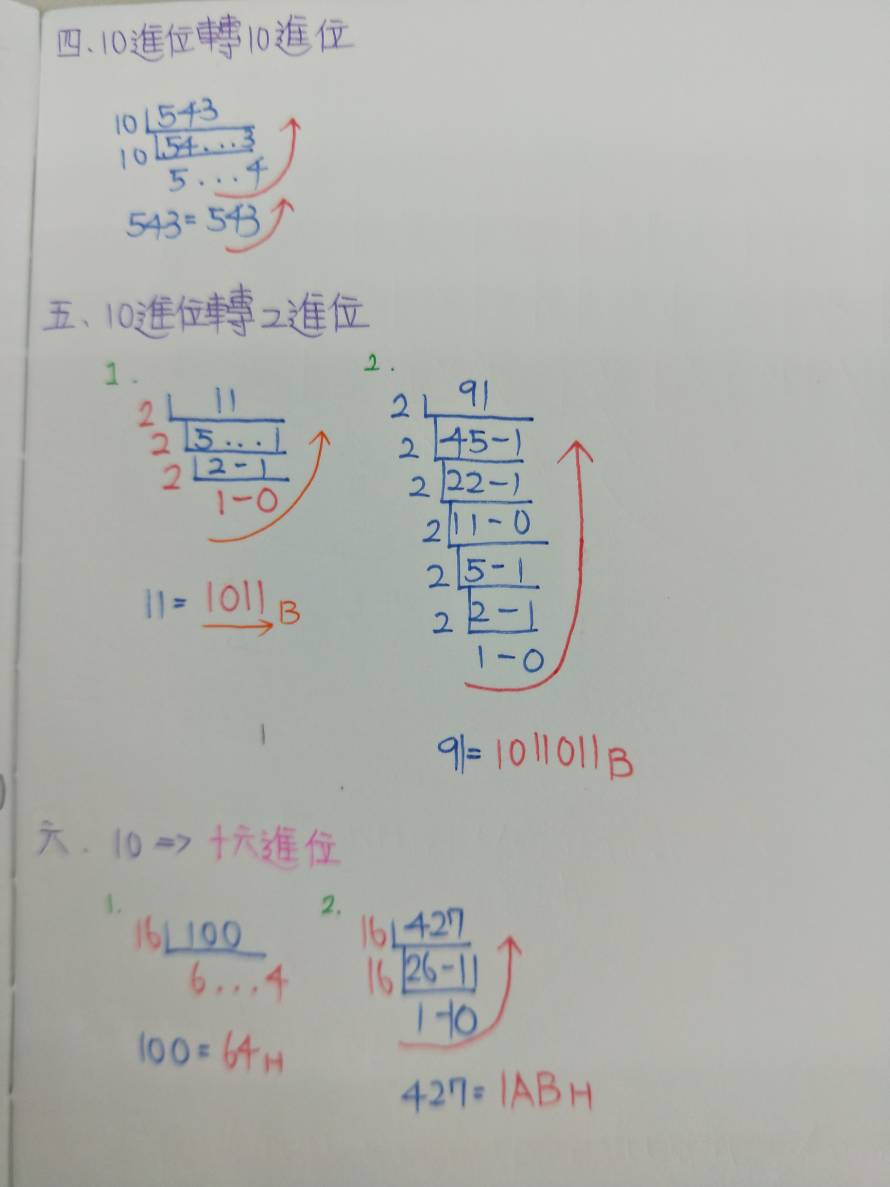 四、10進位轉10進位
10 543
10 54...3
5...4
543=543
五、10進位轉2進位
1.
2 11
2 5...1
2 2-1
1-0
11=1011B
2.
2 91
2 45-1
2 22-1
2 11-0
2 5-1
2 2-1
1-0
91=1011011B
六.10=>十六進位
1.
16 100
6...4
100=64H
2.
16 427
16 26-11
1-10
427=1ABH